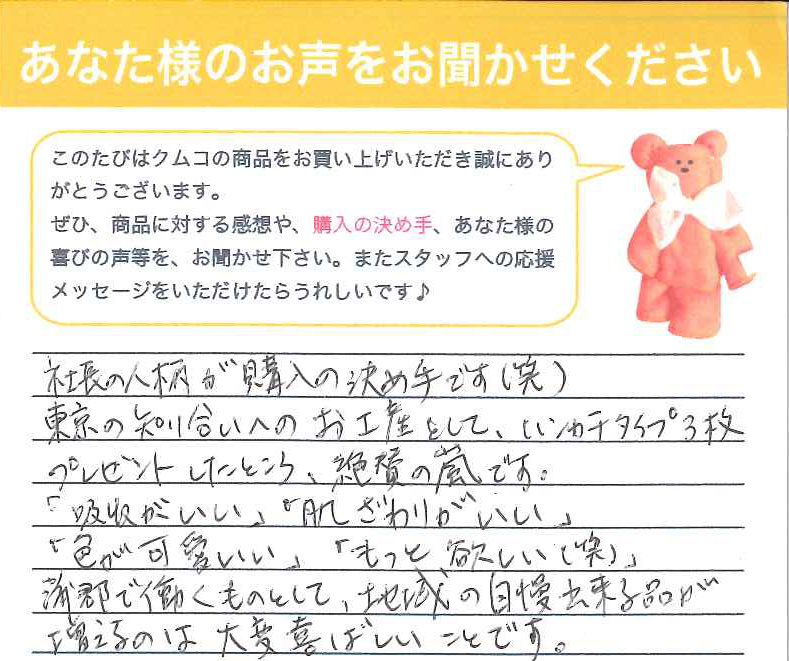 あなた様のお声をお聞かせください
このたびはクムコの商品をお買い上げいただき誠にあり
がとうございます。
ぜひ、商品に対する感想や、購入の決め手、あなた様の
喜びの声等を、お聞かせ下さい。またスタッフへの応援
メッセージをいただけたらうれしいです♪
社長の人柄が購入の決め手です(笑)
東京の知り合いへのお土産として、ハンカチタイプ3枚
プレゼントしたところ、絶賛の嵐です。
「吸収がいい」「肌ざわりがいい」
「色が可愛いい」「もっと欲しい(笑)」
蒲郡で働くものとして、地域の自慢出来る品が
増えるのは大変喜ばしいことです。